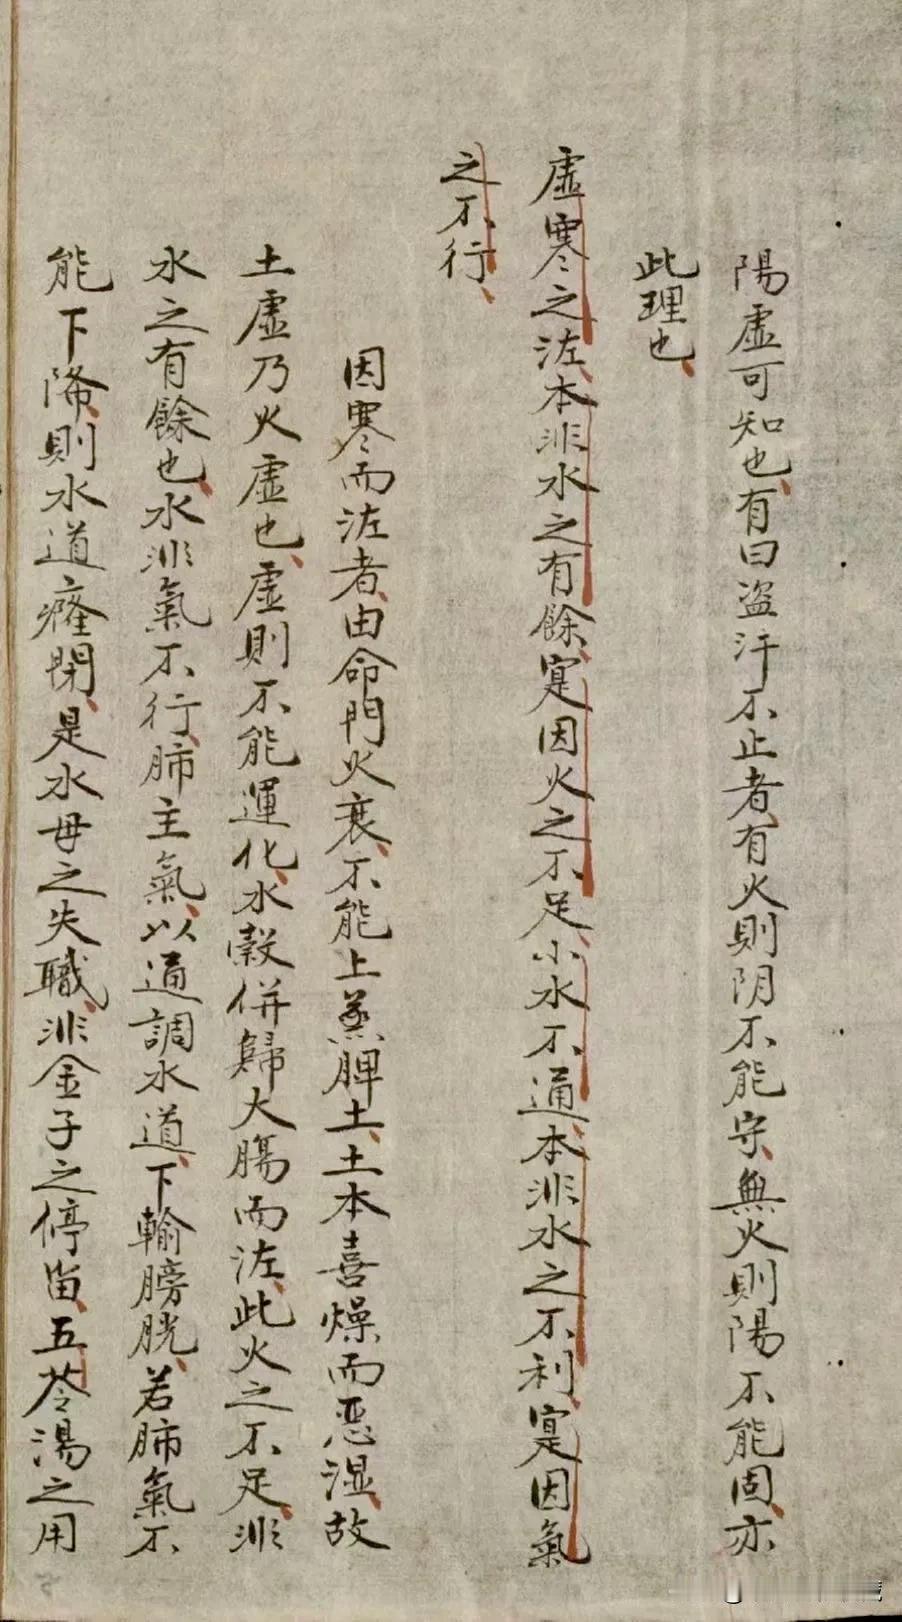 陽虛可知也、有曰盗汗不止者、有火則阴不能守、無火則陽不能固、亦
此理也、
虛寒之泫、本非水之有餘、寔因火之不足、小水不通、本非水之不利、寔因氣
之不行、
因寒而泫者、由命門火衰、不能上蒸脾土、土本喜燥而恶湿、故
土虛乃火虛也、虛則不能運化、水穀併歸大腸而泫、此火之不足、非
水之有餘也、水非氣不行、肺主氣、以通調水道、下輸膀胱、若肺氣不
能下降、則水道癃閉、是水母之失職、非金子之停畄、五苓湯之用